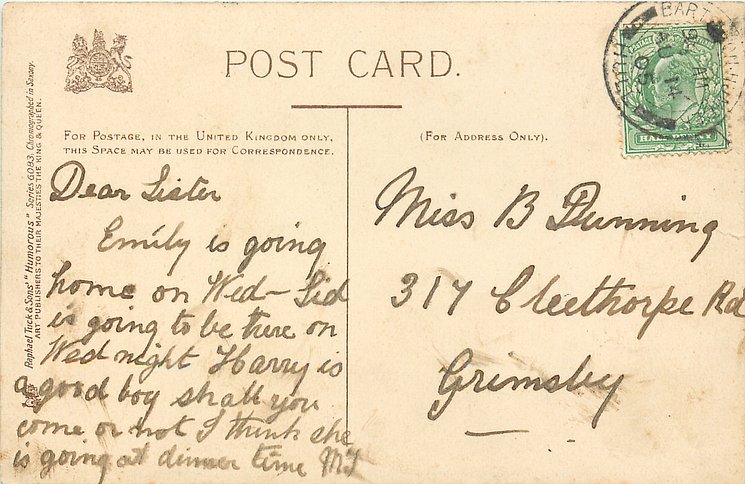 POST CARD.
FOR POSTAGE, IN THE UNITED KINGDOM ONLY,
THIS SPACE MAY BE USED FOR CORRESPONDENCE.
(FOR ADDRESS ONLY).
Raphael Tuck & Sons' "Humorous" Series 6083. Chromographed in Saxony.
ART PUBLISHERS TO THEIR MAJESTIES THE KING & QUEEN.
Dear Sister
Emily is going
home on Wed - Sid
is going to be there on
Wed night Harry is
a good boy shall you
come or not I think she
is going at dinner time
Miss B Dunning
317 Cleethorpe Rd
Grimsby
AU 14
05